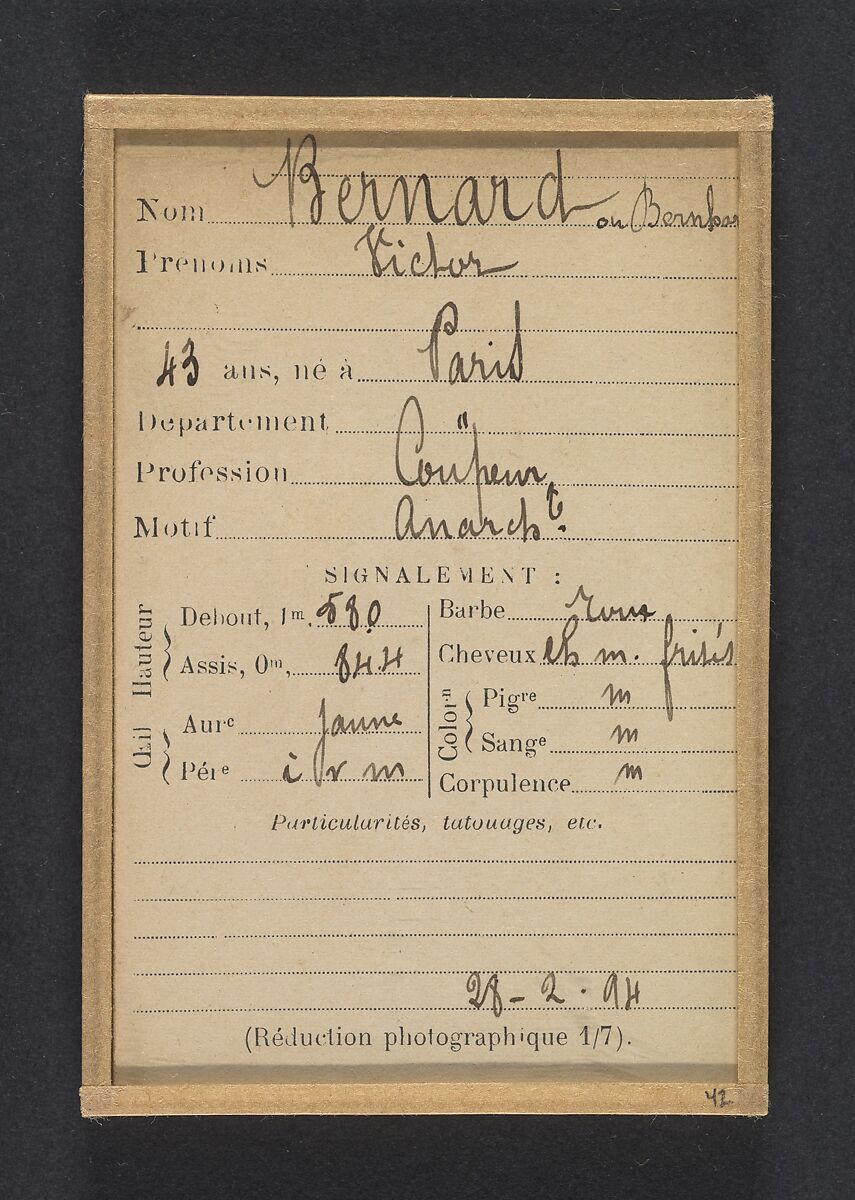 Nom Bernard ou Bernhar
Prénoms Victor
43 ans, né à Paris
Département "
Profession Coupeur
Motif Anarch.te
SIGNALEMENT :
Hauteur
Debout, 1m, 580
Assis, 0m, 844
Œil
Aurc Jaune
Pére i v m
Barbe roux
Cheveux ch m. frisés
Colorn
Pigre m
Sange m
Corpulence m
Particularités, tatouages, etc.
28 - 2 . 94
(Réduction photographique 1/7).
42